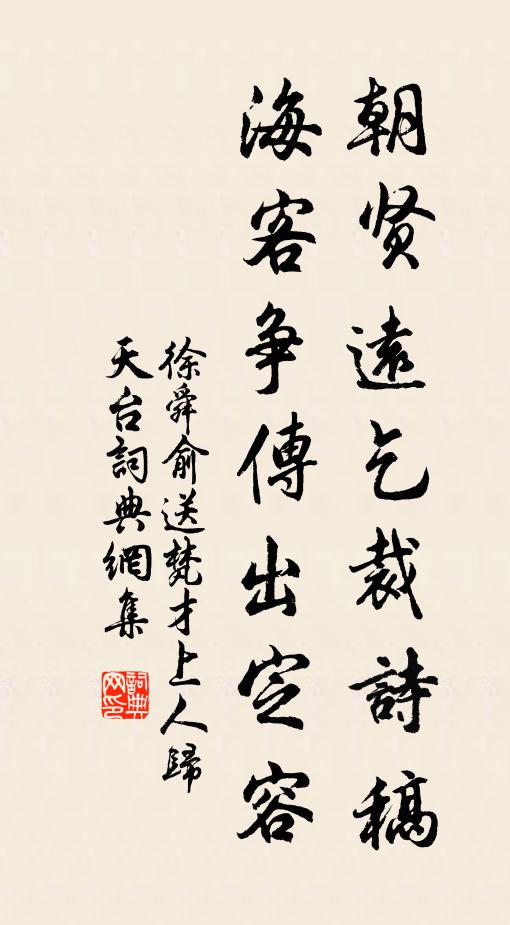 朝贤遠乞裁詩稿
海客争傳出定容
徐舜俞送梵才上人歸
天台詞典網集
詞典
网印